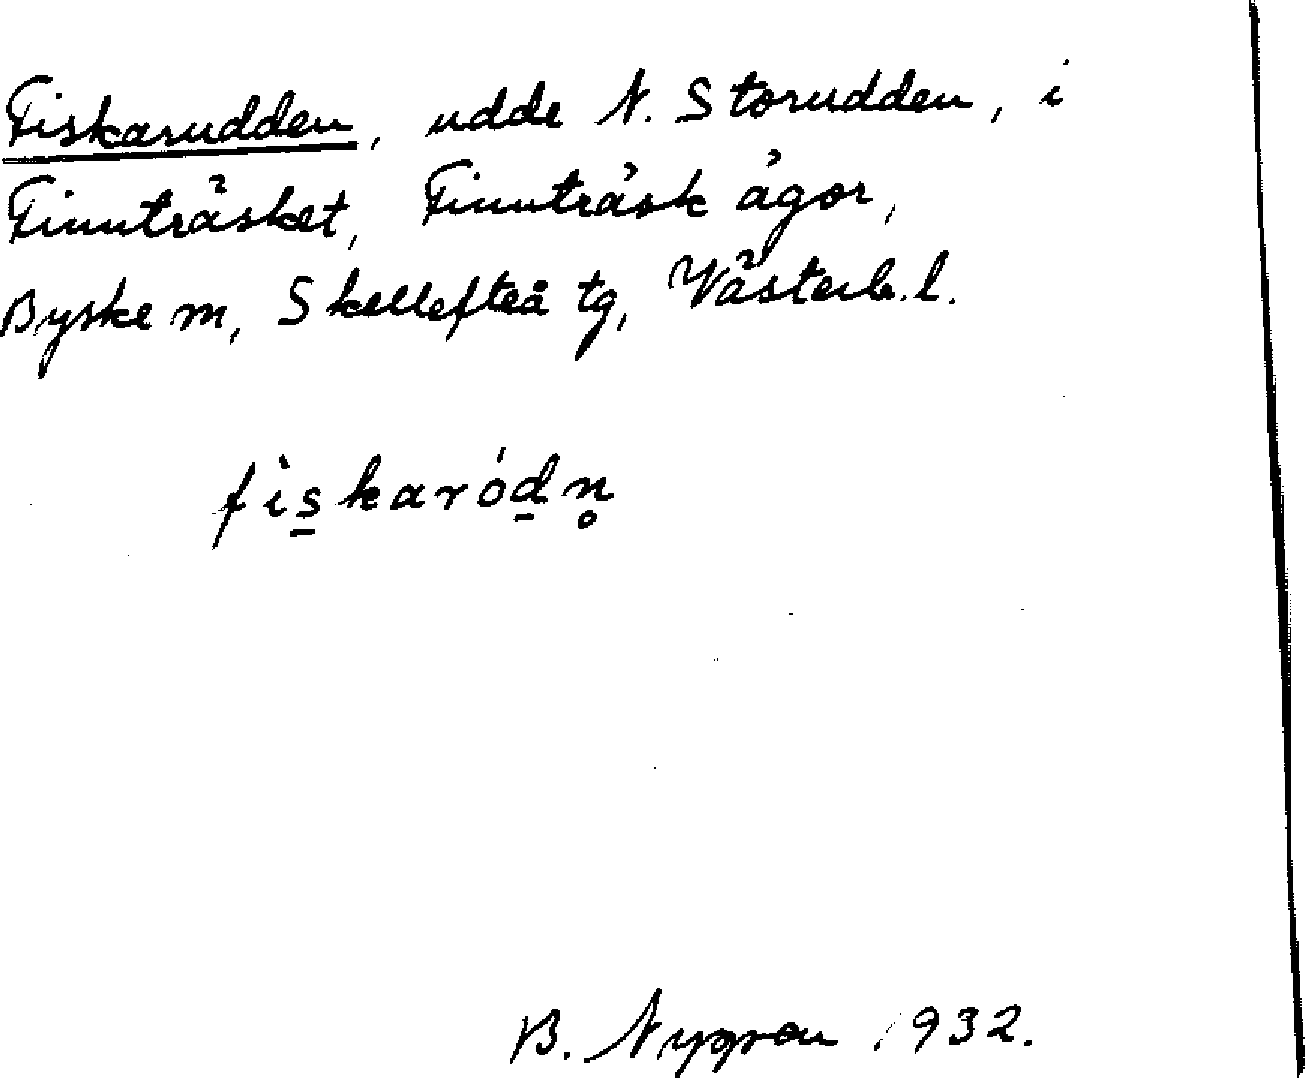 Fiskarudden, udde N. Storudden, i
Finnträsket, Finnträsk ägor,
Byske m, Skellefteå tg, Västerb. l.
fìs̠karód̠n̥
B. Nygren 1932.